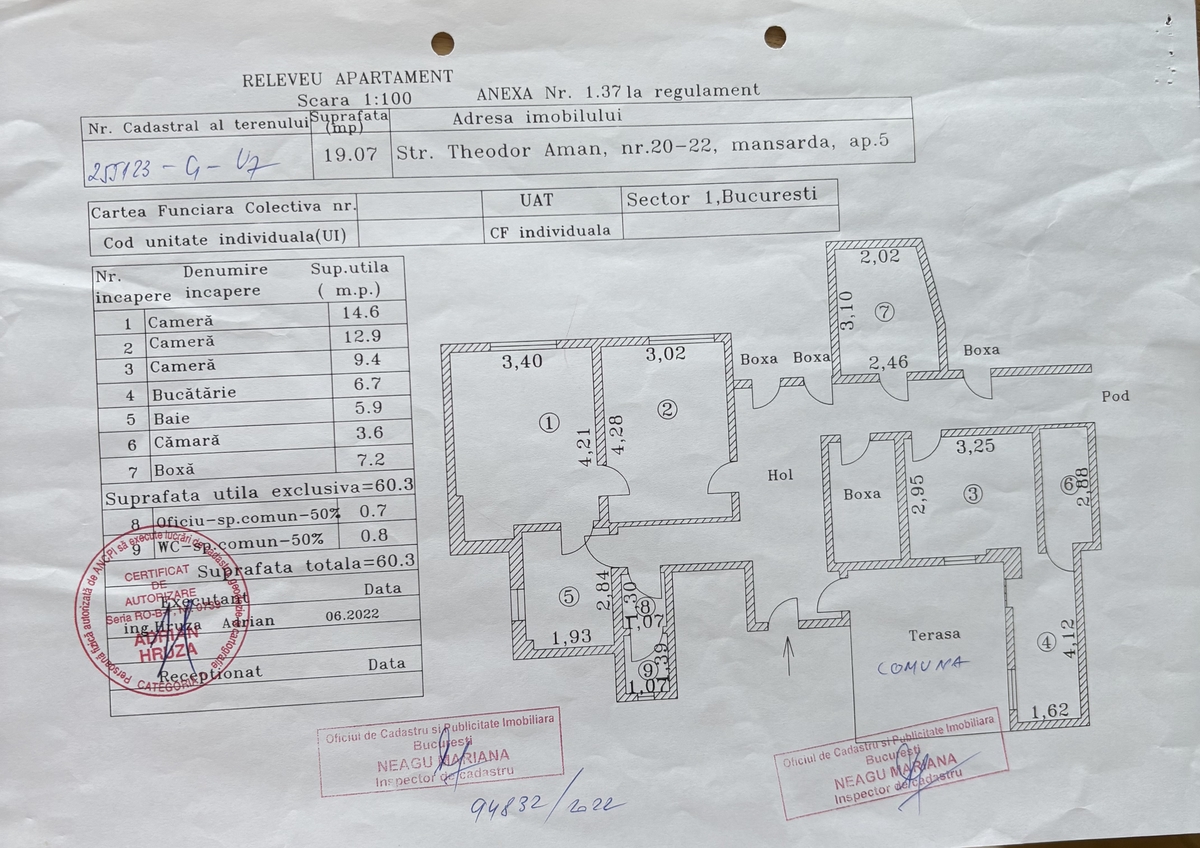 RELEVEU APARTAMENT
Scara 1:100
ANEXA Nr. 1.37 la regulament
Nr. Cadastral al terenului
Suprafata (mp)
Adresa imobilului
255123 - C1 - U7
19.07
Str. Theodor Aman, nr.20-22, mansarda, ap.5
Cartea Funciara Colectiva nr.
UAT
Sector 1,Bucuresti
Cod unitate individuala(UI)
CF individuala
Nr. incapere
Denumire incapere
Sup.utila ( m.p.)
1 Cameră 14.6
2 Cameră 12.9
3 Cameră 9.4
4 Bucătărie 6.7
5 Baie 5.9
6 Cămară 3.6
7 Boxă 7.2
Suprafata utila exclusiva=60.3
8 Oficiu-sp.comun-50% 0.7
9 WC-sp.comun-50% 0.8
Suprafata totala=60.3
Executant Data
ing.Hruza Adrian 06.2022
Receptionat Data
Persoană fizică autorizată de ANCPI să execute lucrări de cadastru, geodezie, cartografie
CERTIFICAT
DE
AUTORIZARE
Seria RO-B-F
ADRIAN
HRUZA
CATEGORIA
3,40
1
4,21
3,02
2
4,28
Boxa
Boxa
2,02
3,10
7
2,46
Boxa
Pod
Hol
Boxa
3,25
2,95
3
6
2,88
5
2,84
1,93
1,30
8
1,07
1,39
9
1,07
Terasa
COMUNA
4
4,12
1,62
Oficiul de Cadastru si Publicitate Imobiliara
Bucuresti
NEAGU MARIANA
Inspector de cadastru
94832/2022
Oficiul de Cadastru si Publicitate Imobiliara
Bucuresti
NEAGU MARIANA
Inspector de cadastru